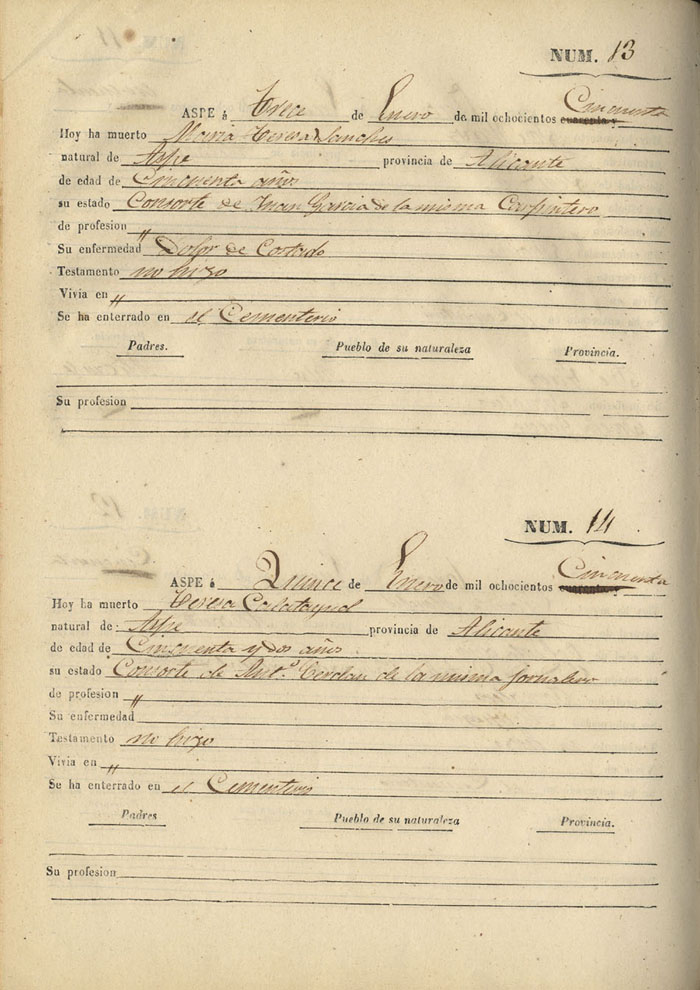 NUM. 13
ASPE á Trece de Enero de mil ochocientos cuarenta y Cincuenta
Hoy ha muerto Maria Teresa Sanches
natural de Aspe provincia de Alicante
de edad de Cincuenta años
su estado Consorte de Juan Garcia de la misma Carpintero
de profesion "
Su enfermedad Dolor de Costado
Testamento no hizo
Vivia en "
Se ha enterrado en el Cementerio
Padres. Pueblo de su naturaleza Provincia.
Su profesion
NUM. 14
ASPE á Quince de Enero de mil ochocientos cuarenta y Cincuenta
Hoy ha muerto Teresa Calatayud
natural de Aspe provincia de Alicante
de edad de Cincuenta y dos años
su estado Consorte de Antº Cerdan de la misma jornalero
de profesion "
Su enfermedad
Testamento no hizo
Vivia en "
Se ha enterrado en el Cementerio
Padres Pueblo de su naturaleza Provincia.
Su profesion